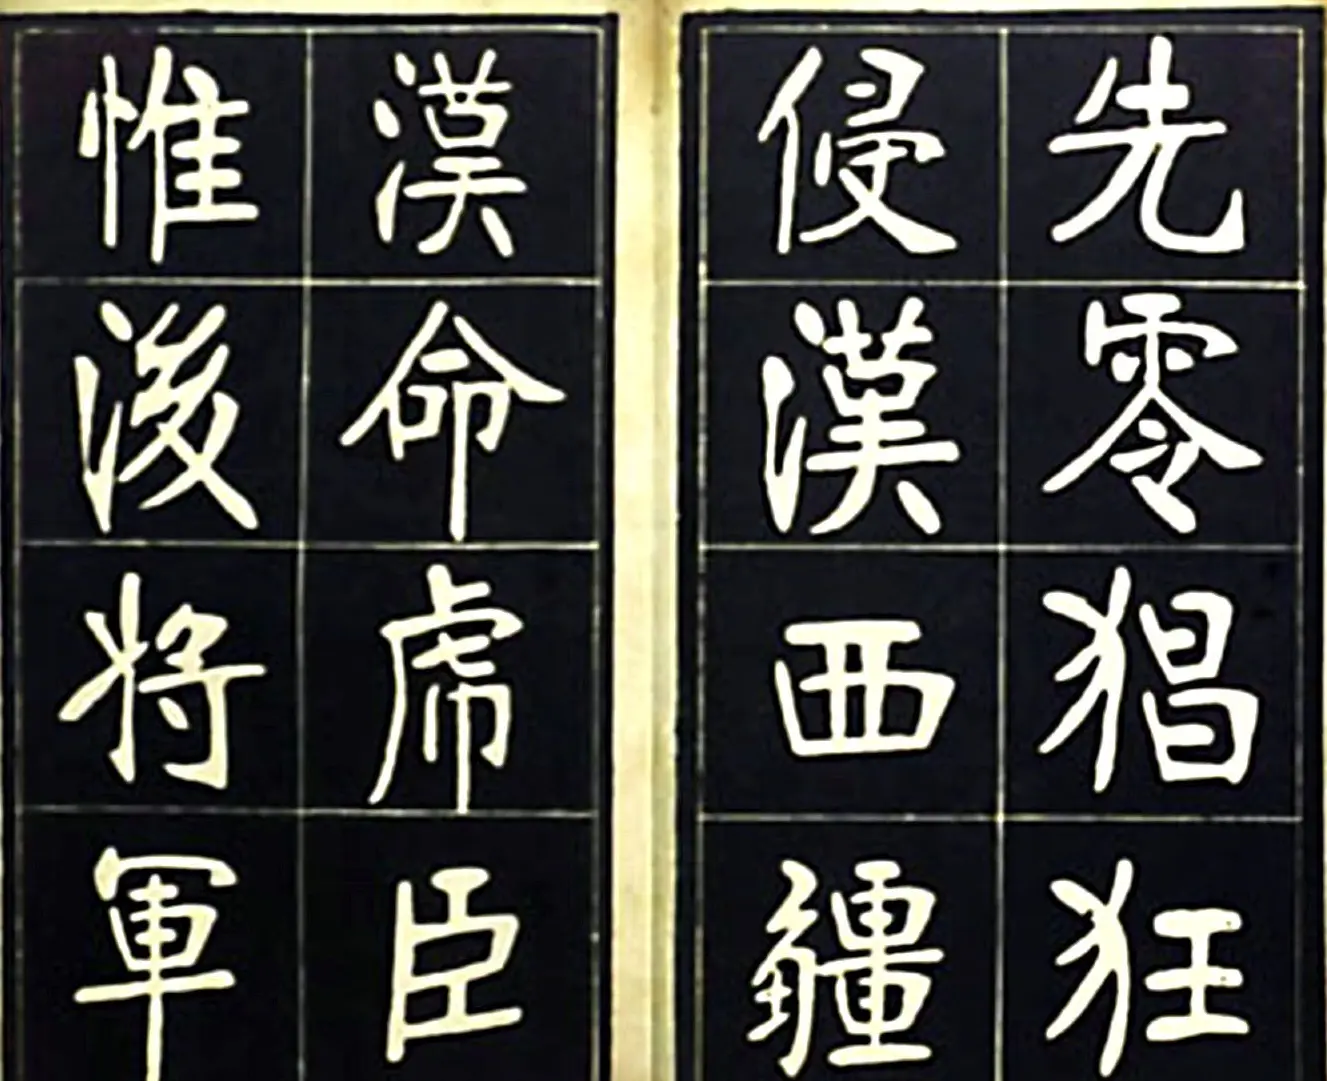 先零猖狂
侵漢西疆
漢命虎臣
惟後将軍